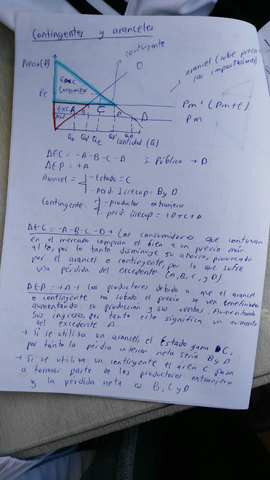 Contingentes y aranceles
contingente
Precio (P)
O
arancel (sube precio
las importaciones)
Exc
Consumidor
Pe
Pm' (Pm+t)
Pm
A
C
D
Cantidad (Q)
ΔEC = -A-B-C-D
S. Público → D
ΔEP = +A
Arancel = - Estado = C
- perd. irrecup = B y D
Contingente: - productor extranjero
- perd. irrecup =
ΔEC = -A-B-C-D → Los consumidores que continúan
en el mercado compran el bien a un precio más
alto, por lo tanto disminuye su ahorro, provocado
por el arancel o contingente, por lo que sufre
una pérdida del excedente (A, B, C, y D)
ΔEP = +A → Los productores debido a que el arancel
o contingente ha el precio se ven beneficiados
aumentando su producción y sus ventas, Aumentando
sus ingresos, por tanto esto significa un aumento
del excedente A.
→ Si se utiliza un arancel, el Estado gana C,
por tanto la pérdida interior neta sería B y D
→ Si se utiliza un contingente el área C pasa
a formar parte de los productores extranjero
y la pérdida neta es B, C y D